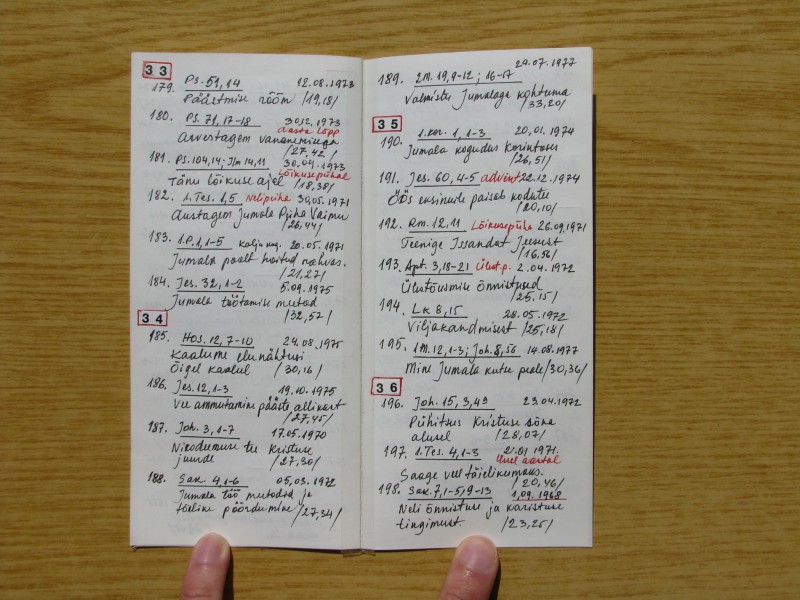 33
179. Ps. 51,14 12.08.1973
Päästmise rõõm /19,18/
180. Ps. 71,17-18 30.12.1973
Aasta lõpp
Arvestagem vananemisega
/27,42/
181. Ps. 104,14; Jlm 14,11 30.09.1973
Lõikusepühal
Tänu lõikuse ajel /18,38/
182. 1. Tes. 1,5 Nelipüha 30.05.1971
Austagem Jumala Püha Vaimu
/26,44/
183. 1.P. 1,1-5 Kalju kog. 20.05.1971
Jumala poolt hoitud rahvas.
/21,27/
184. Jes. 32,1-2 5.09.1975
Jumala töötamise mutod
/32,57/
34
185. Hos. 12,7-10 24.08.1975
Kaalume elunähtusi
Õigel kaalul /30,16/
186. Jes. 12,1-3 19.10.1975
Vee ammutamine pääste allikast
/27,45/
187. Joh. 3,1-7 17.05.1970
Nikodeemuse tee Kristuse
juurde /27,30/
188. Sak. 4,1-6 05.03.1972
Jumala töö metodid ja
tõeline pöördumine /27,34/
24.07.1977
189. 2M. 19,9-12; 16-17
Valmistu Jumalaga kohtuma
/33,20/
35
190. 1.Kor. 1,1-3 20.01.1974
Jumala kogudus Korintoses
/26,51/
191. Jes. 60,4-5 advent 22.12.1974
Öös eksinuile paisab kodutee
/20,10/
192. Rm. 12,11 Lõikusepüha 26.09.1971
Teenige Issandat Jeesust
/16,56/
193. Apt. 3,18-21 Ülest.p. 2.04.1972
Ülestõusmise õnnistused
/25,15/
194. Lk 8,15 28.05.1972
Viljakandmisest /25,18/
195. 1M. 12,1-3; Joh. 8,56 14.08.1977
Mine Jumala kutse peale /30,36/
36
196. Joh. 15,3,49 23.04.1972
Pühitsus Kristuse sõna
alusel /28,07/
197. 1. Tes. 4,1-3 21.01.1971.
Uuel aastal
Saage veel täielikumaks.
/20,46/
198. Sak. 7,1-5,9-13 1.09.1968
Neli õnnistuse ja karistuse
tingimust /23,25/